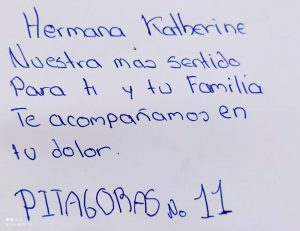 Hermana Katherine
Nuestra mas sentido
Para ti y tu Familia
Te acompañamos en
tu dolor.
PITAGORAS No 11